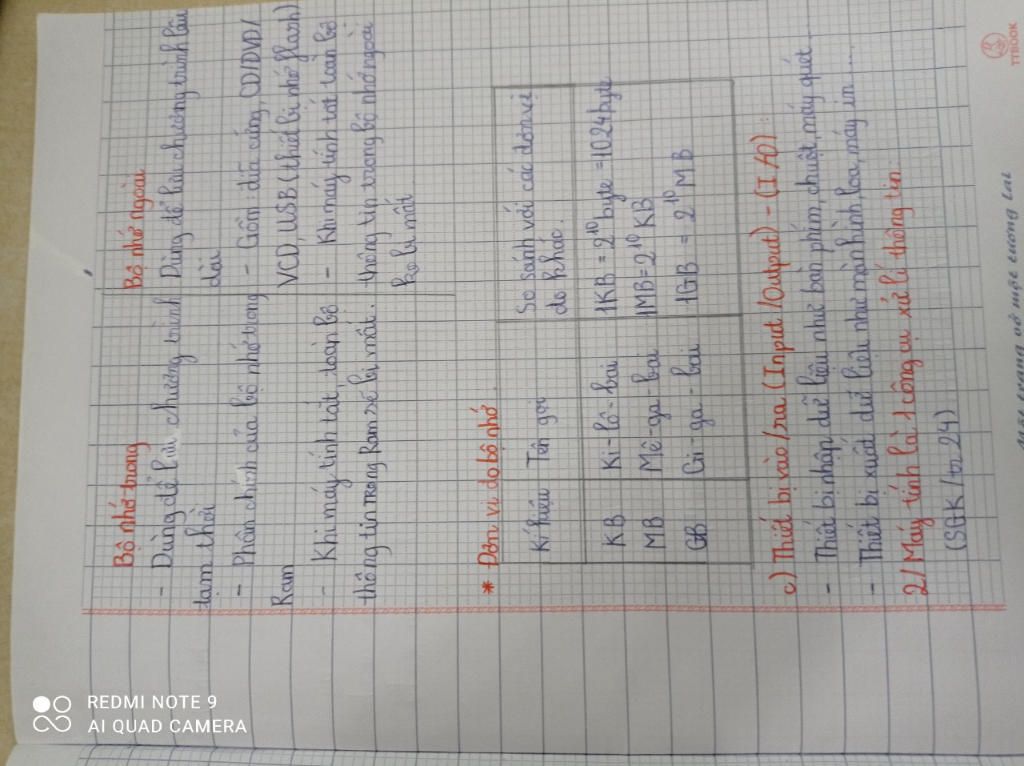 Bộ nhớ trong
- Dùng để lưu chương trình
tạm thời
- Phần chính của bộ nhớ trong
Ram
- Khi máy tính tắt, toàn bộ
thông tin trong Ram sẽ bị mất.
Bộ nhớ ngoài
Dùng để lưu chương trình lâu
dài
- Gồm: đĩa cứng, CD/DVD/
VCD, USB (thiết bị nhớ flash)
- Khi máy tính tắt toàn bộ
thông tin trong bộ nhớ ngoài
ko bị mất
* Đơn vị đo bộ nhớ
Kí hiệu Tên gọi So sánh với các đơn vị
đo khác.
KB Ki-lô-bai 1KB = 2^10 byte = 1024 byte
MB Mê-ga-bai 1MB = 2^10 KB
GB Gi-ga-bai 1GB = 2^10 MB
c) Thiết bị vào/ra (Input/Output) - (I/O):
- Thiết bị nhập dữ liệu như bàn phím, chuột, máy quét...
- Thiết bị xuất dữ liệu như màn hình, loa, máy in.....
2/ Máy tính là 1 công cụ xử lí thông tin.
(SGK/tr.24)
TTBOOK
REDMI NOTE 9
AI QUAD CAMERA